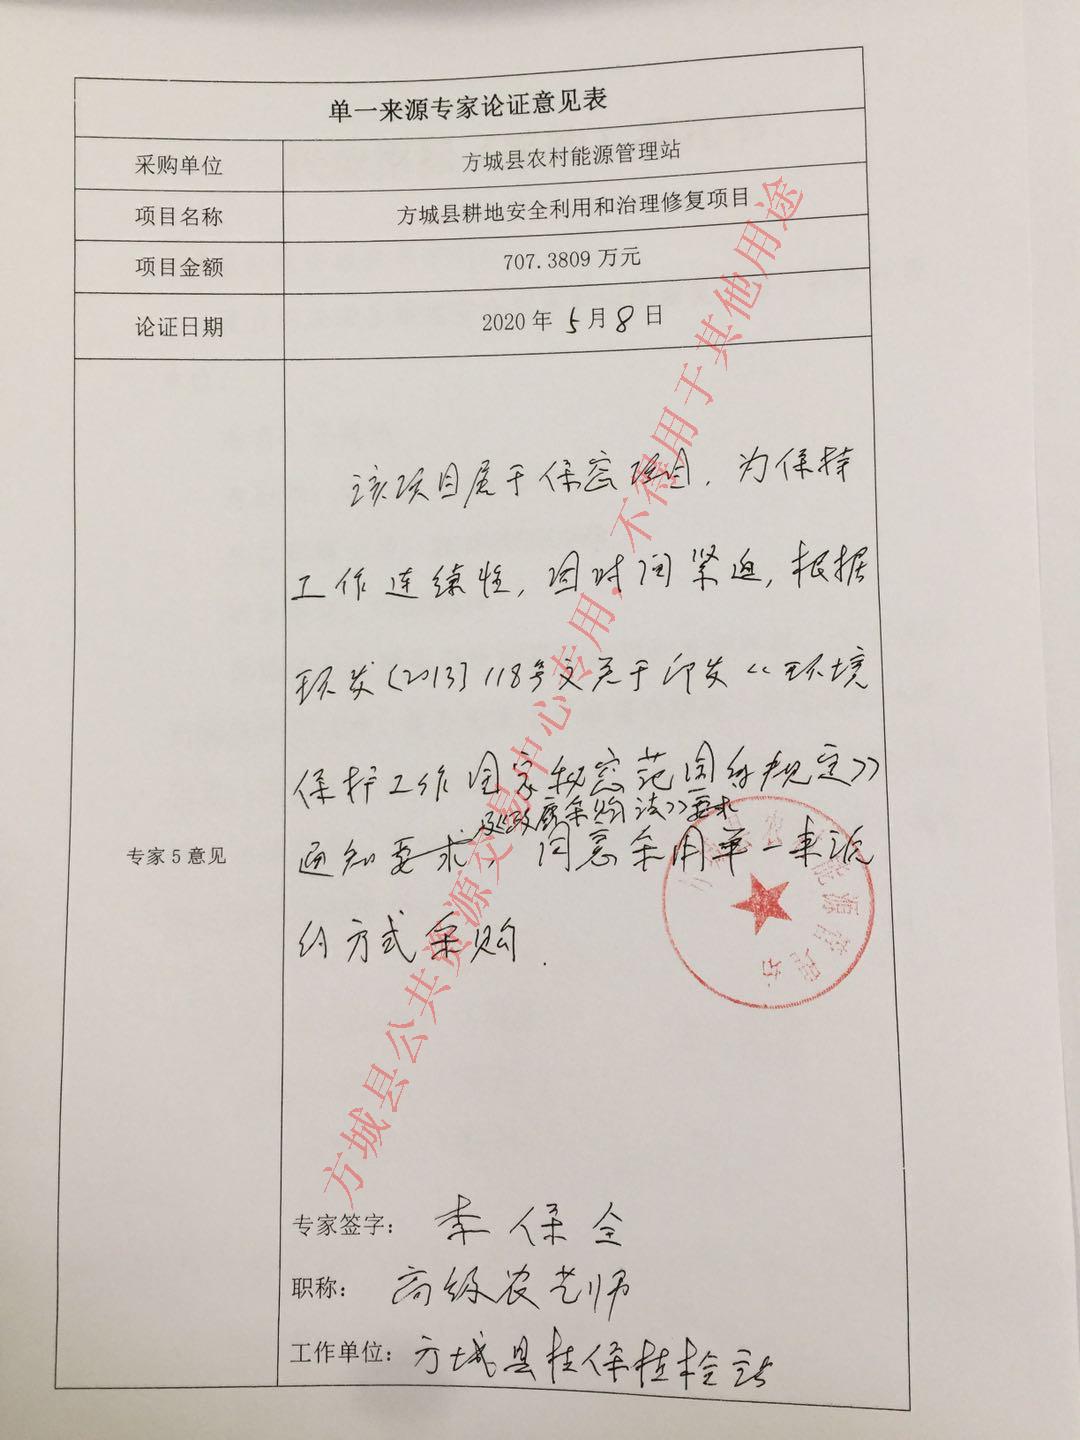 单一来源专家论证意见表
采购单位 方城县农村能源管理站
项目名称 方城县耕地安全利用和治理修复项目
项目金额 707.3809 万元
论证日期 2020 年 5 月 8 日
专家 5 意见
该项目属于保密项目，为保持
工作连续性，因时间紧迫，根据
环发〔2013〕118号文关于印发《环境
保护工作国家秘密范围的规定》
及《政府采购法》要求
通知要求，同意采用单一来源
的方式采购．
专家签字： 李保全
职称： 高级农艺师
工作单位： 方城县植保植检站
方城县公共资源交易中心专用，不得用于其他用途
能源管理站